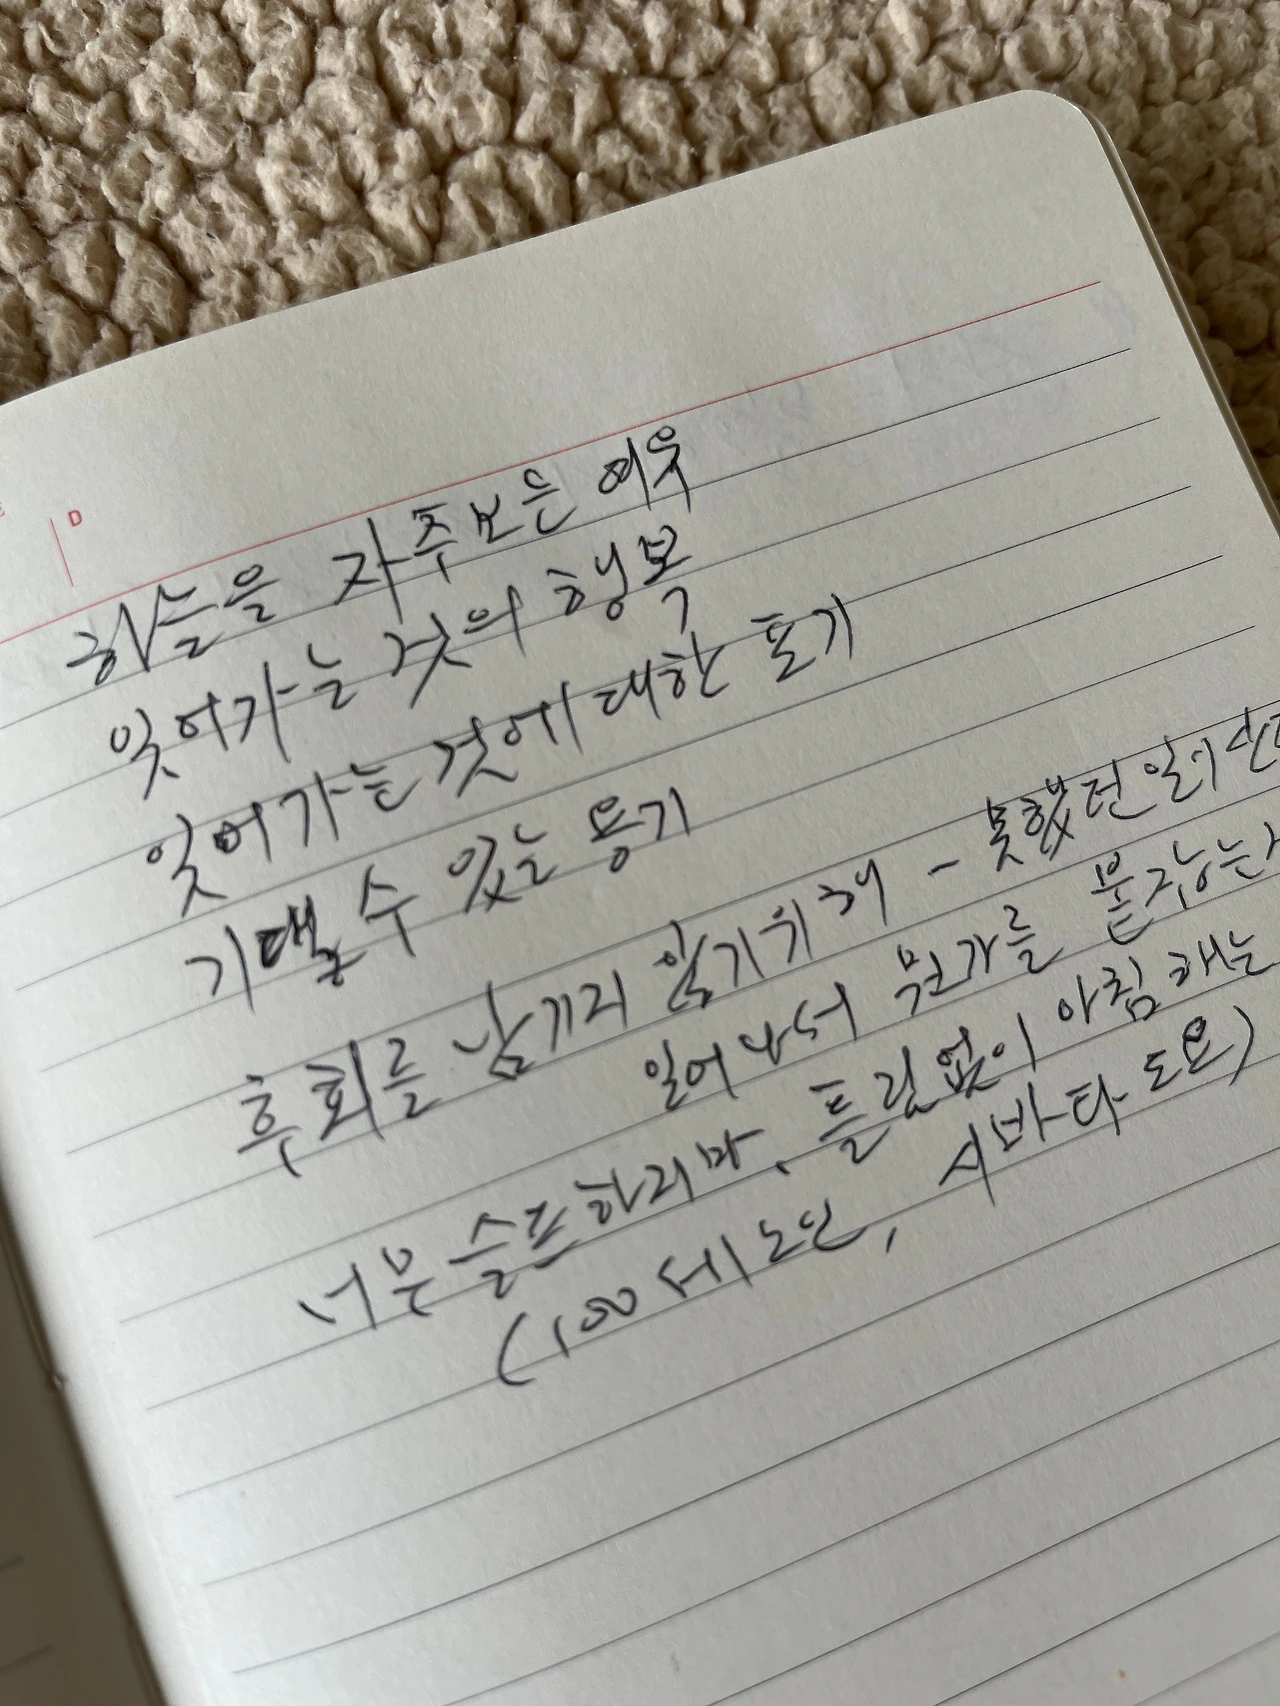 D
하늘을 자주보는 여유
잊어가는 것의 행복
잊어가는 것에 대한 포기
기댈 수 있는 용기
후회를 남기지 않기위해 - 못했던 일이
일어나서 뭔가를 붙잡는
너무 슬프하지마, 틀림없이 아침해는
(100세 노인, 시바타 도요)